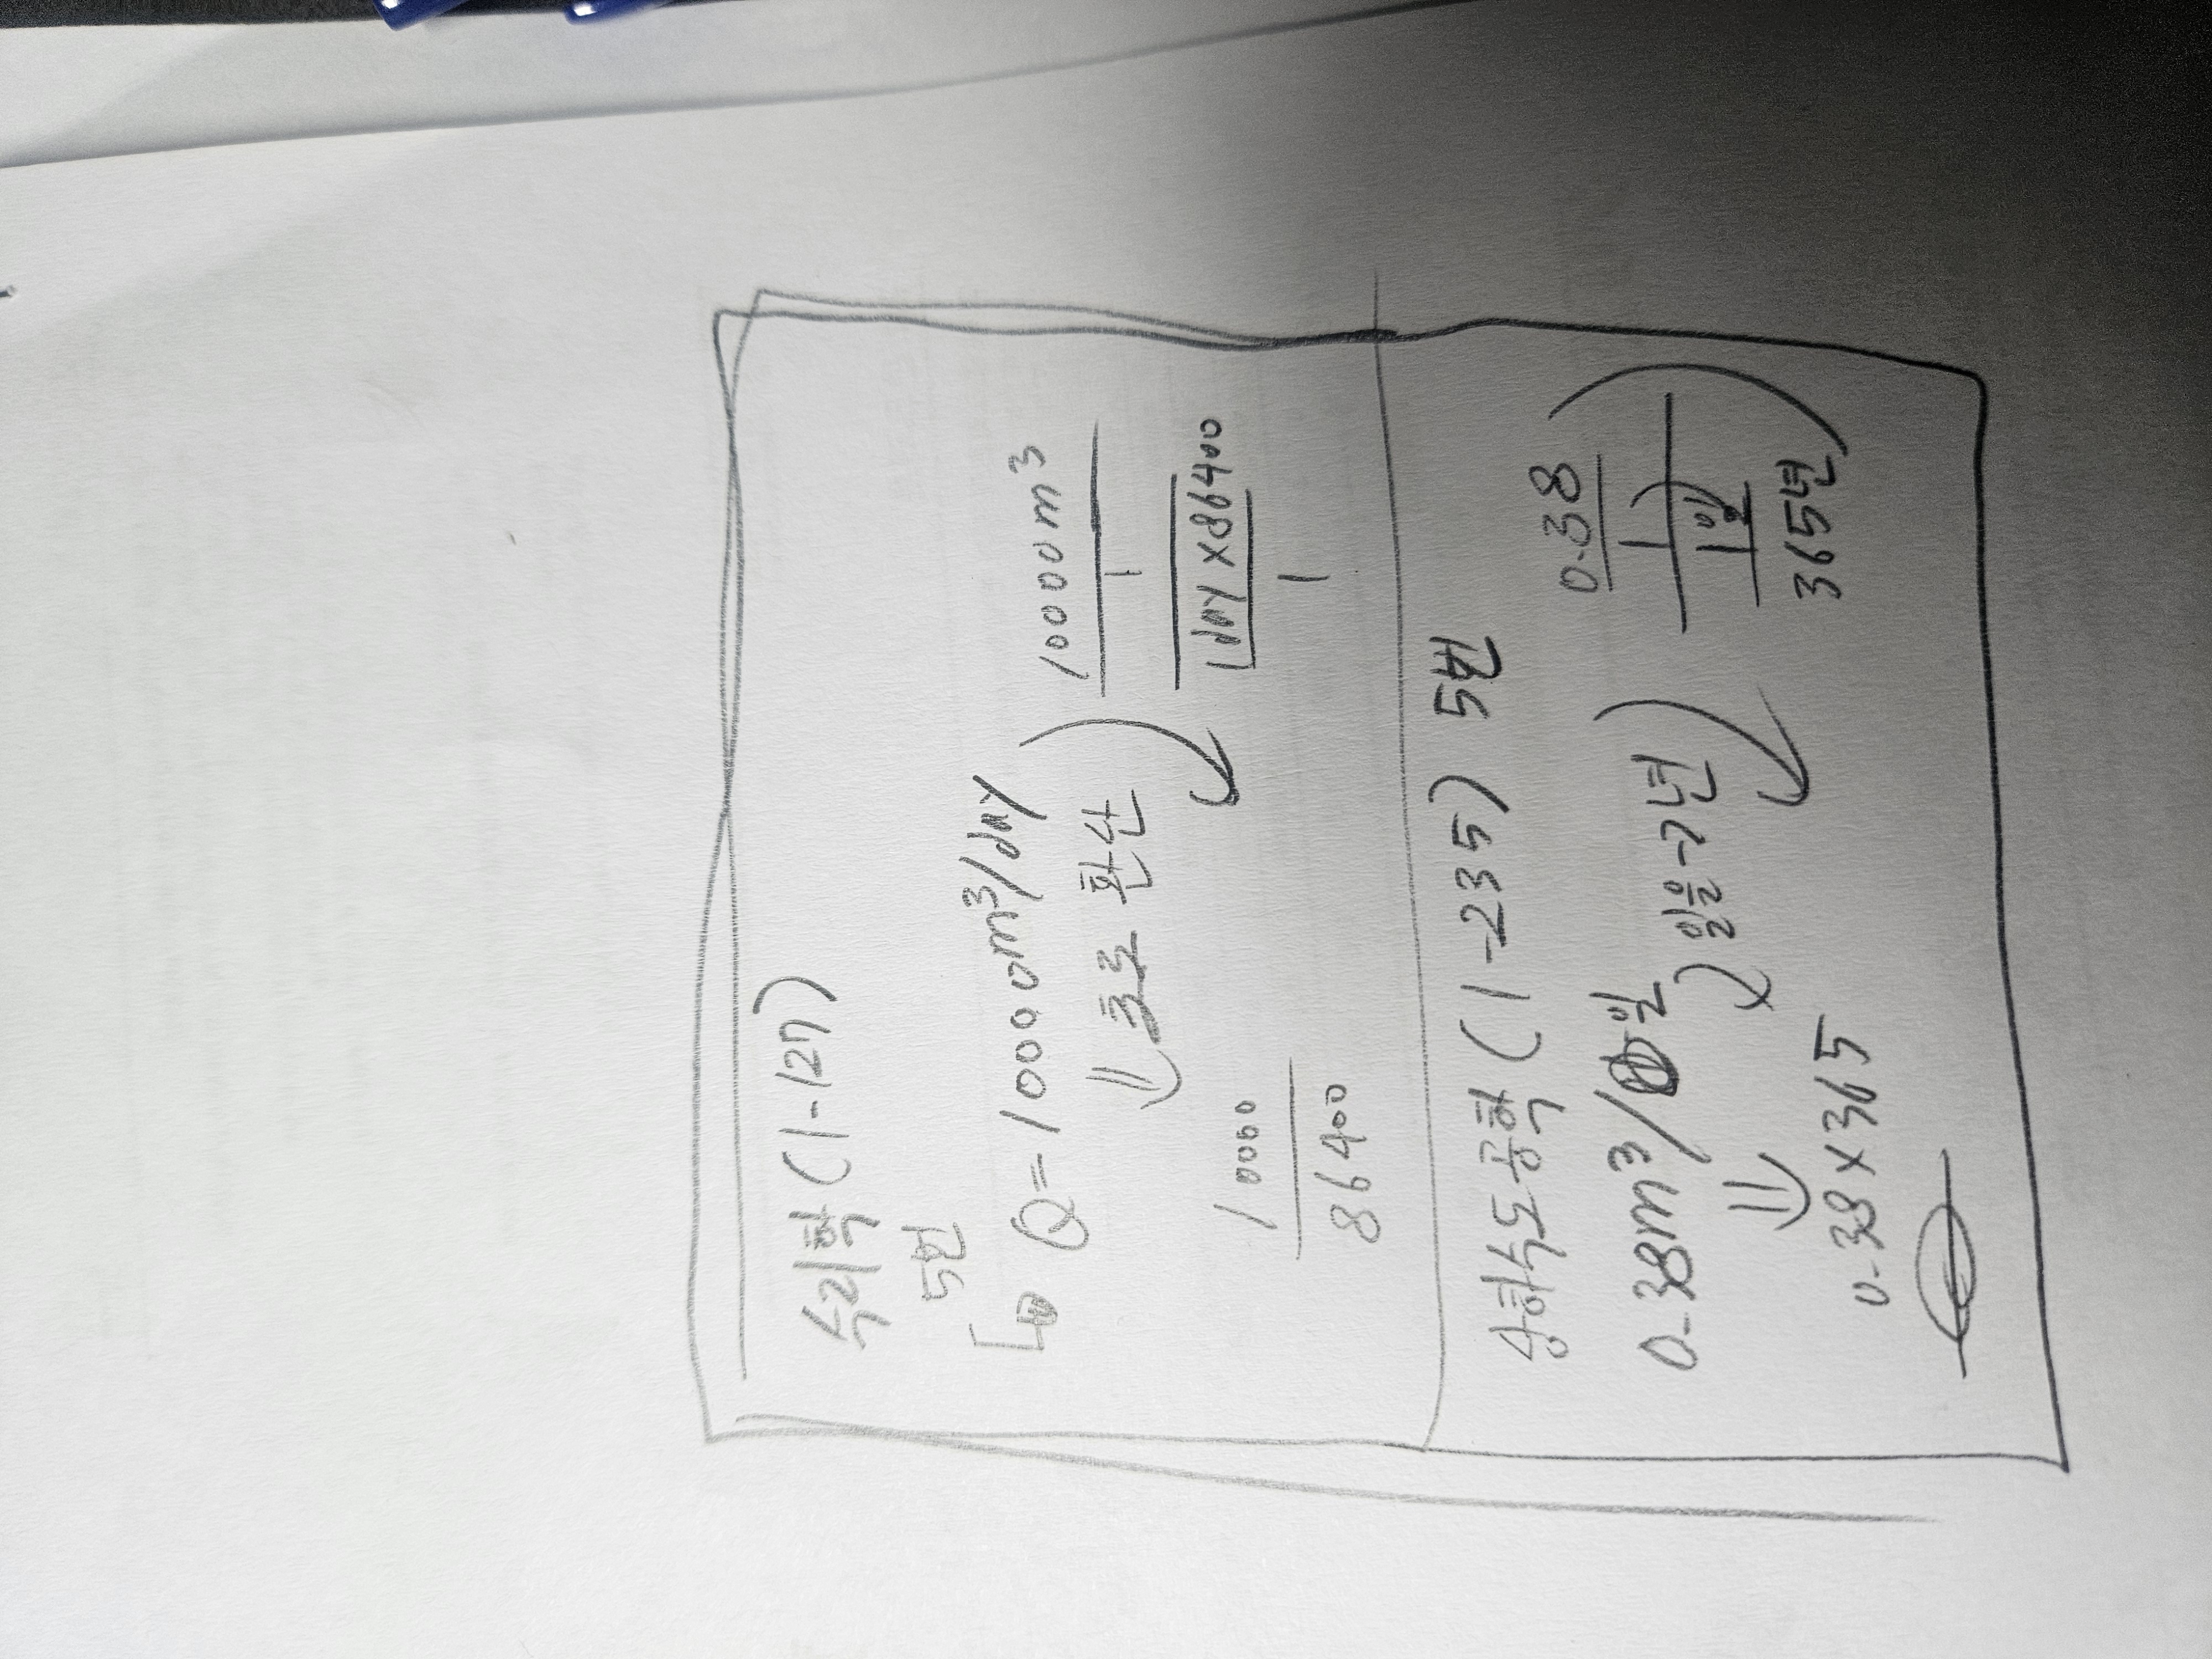 수리학 (1-127)
5번
Q=10000m³/day
초로 환산
10000m³
1
1day×86400
1
10000
86400
상하수도공학 (1-235) 5번
0.38m³/일
일을→년
0.38×365
0.38
1
1일
365년